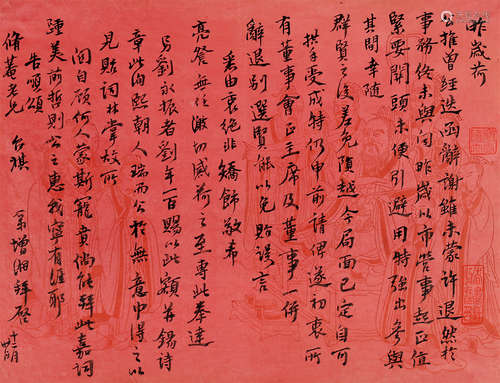 昨歲荷
推曾經迭函辭謝雖未蒙許退然於
事務終未與聞昨歲以市營事起正值
緊要關頭未便引避用特強出參與
其間幸隨
群賢之後差免隕越今局面已定自可
拱手受成特仍申前請俾遂初衷所
有董事會正主席及董事一併
辭退別選賢能以免貽誤言
悉由衷絕非矯飾敬希
亮詧無任激切感荷之至專此奉達
劉永振者劉年一百賜以此額并錫詩
章此何熙朝人瑞而公於無意中得之以
見貽詞林掌故所
問自顧何人蒙斯寵賁偶能拜此嘉詞
踵美前哲則公之惠我寧有涯耶
告頌頌
脩菴老兄 台祺
弟增湘拜啓 十一月